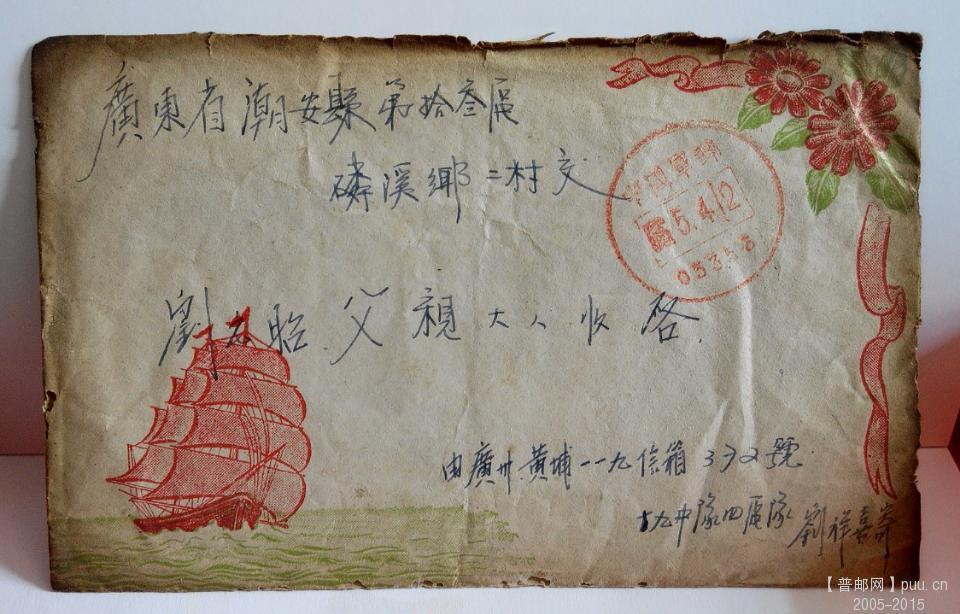 廣東省潮安縣第拾叁區
磷溪鄉二村交
中國軍郵
5.4.12
劉 昭 父親大人收啓
由廣州黃埔一一九信箱392號
十九中隊四區隊 劉祥喜寄
【普邮网】puu.cn
2005-2015